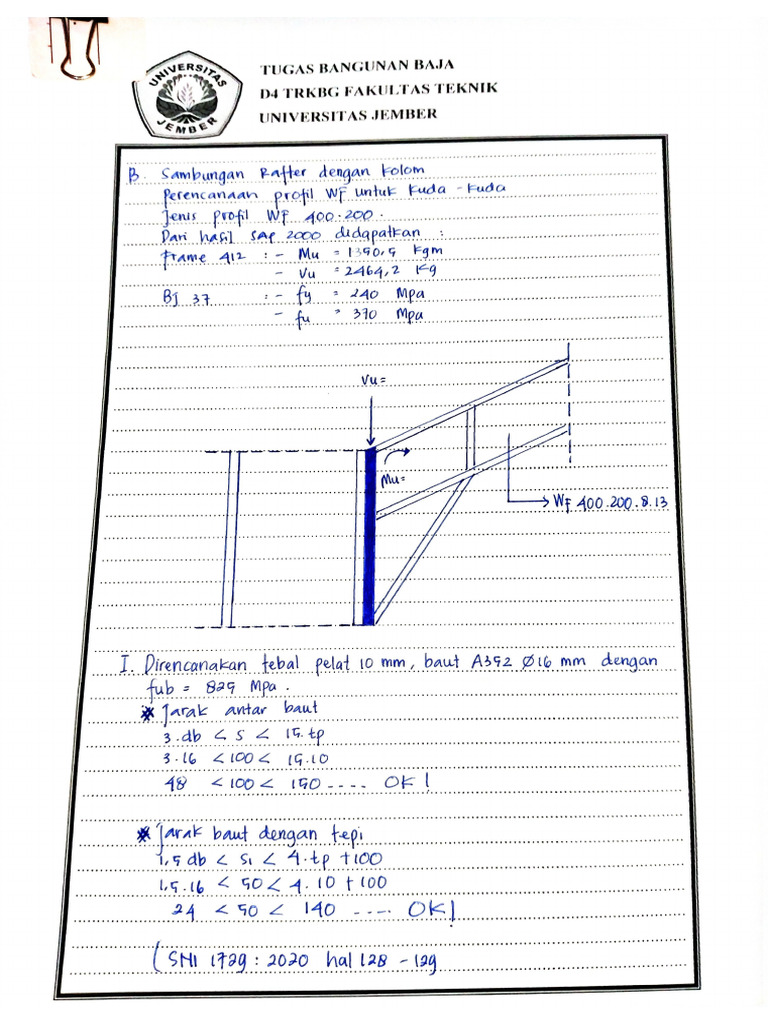 UNIVERSITAS
JEMBER
TUGAS BANGUNAN BAJA
D4 TRKBG FAKULTAS TEKNIK
UNIVERSITAS JEMBER
B. Sambungan Rafter dengan Kolom
Perencanaan profil WF untuk Kuda - Kuda
Jenis profil WF 400.200.
Dari hasil SAP 2000 didapatkan :
Frame 412 : - Mu = 1350,5 Kgm
- Vu = 2464,2 Kg
BJ 37 : - fy = 240 Mpa
- fu = 370 Mpa
Vu=
Mu=
WF 400.200.8.13
I. Direncanakan tebal pelat 10 mm, baut A352 Ø16 mm dengan
fub = 825 Mpa.
* Jarak antar baut
3.db < S < 15.tp
3.16 < 100 < 15.10
48 < 100 < 150 .... OK!
* Jarak baut dengan tepi
1,5 db < S1 < 4.tp + 100
1,5.16 < 50 < 4.10 + 100
24 < 50 < 140 .... OK!
(SNI 1729 : 2020 hal 128 - 129